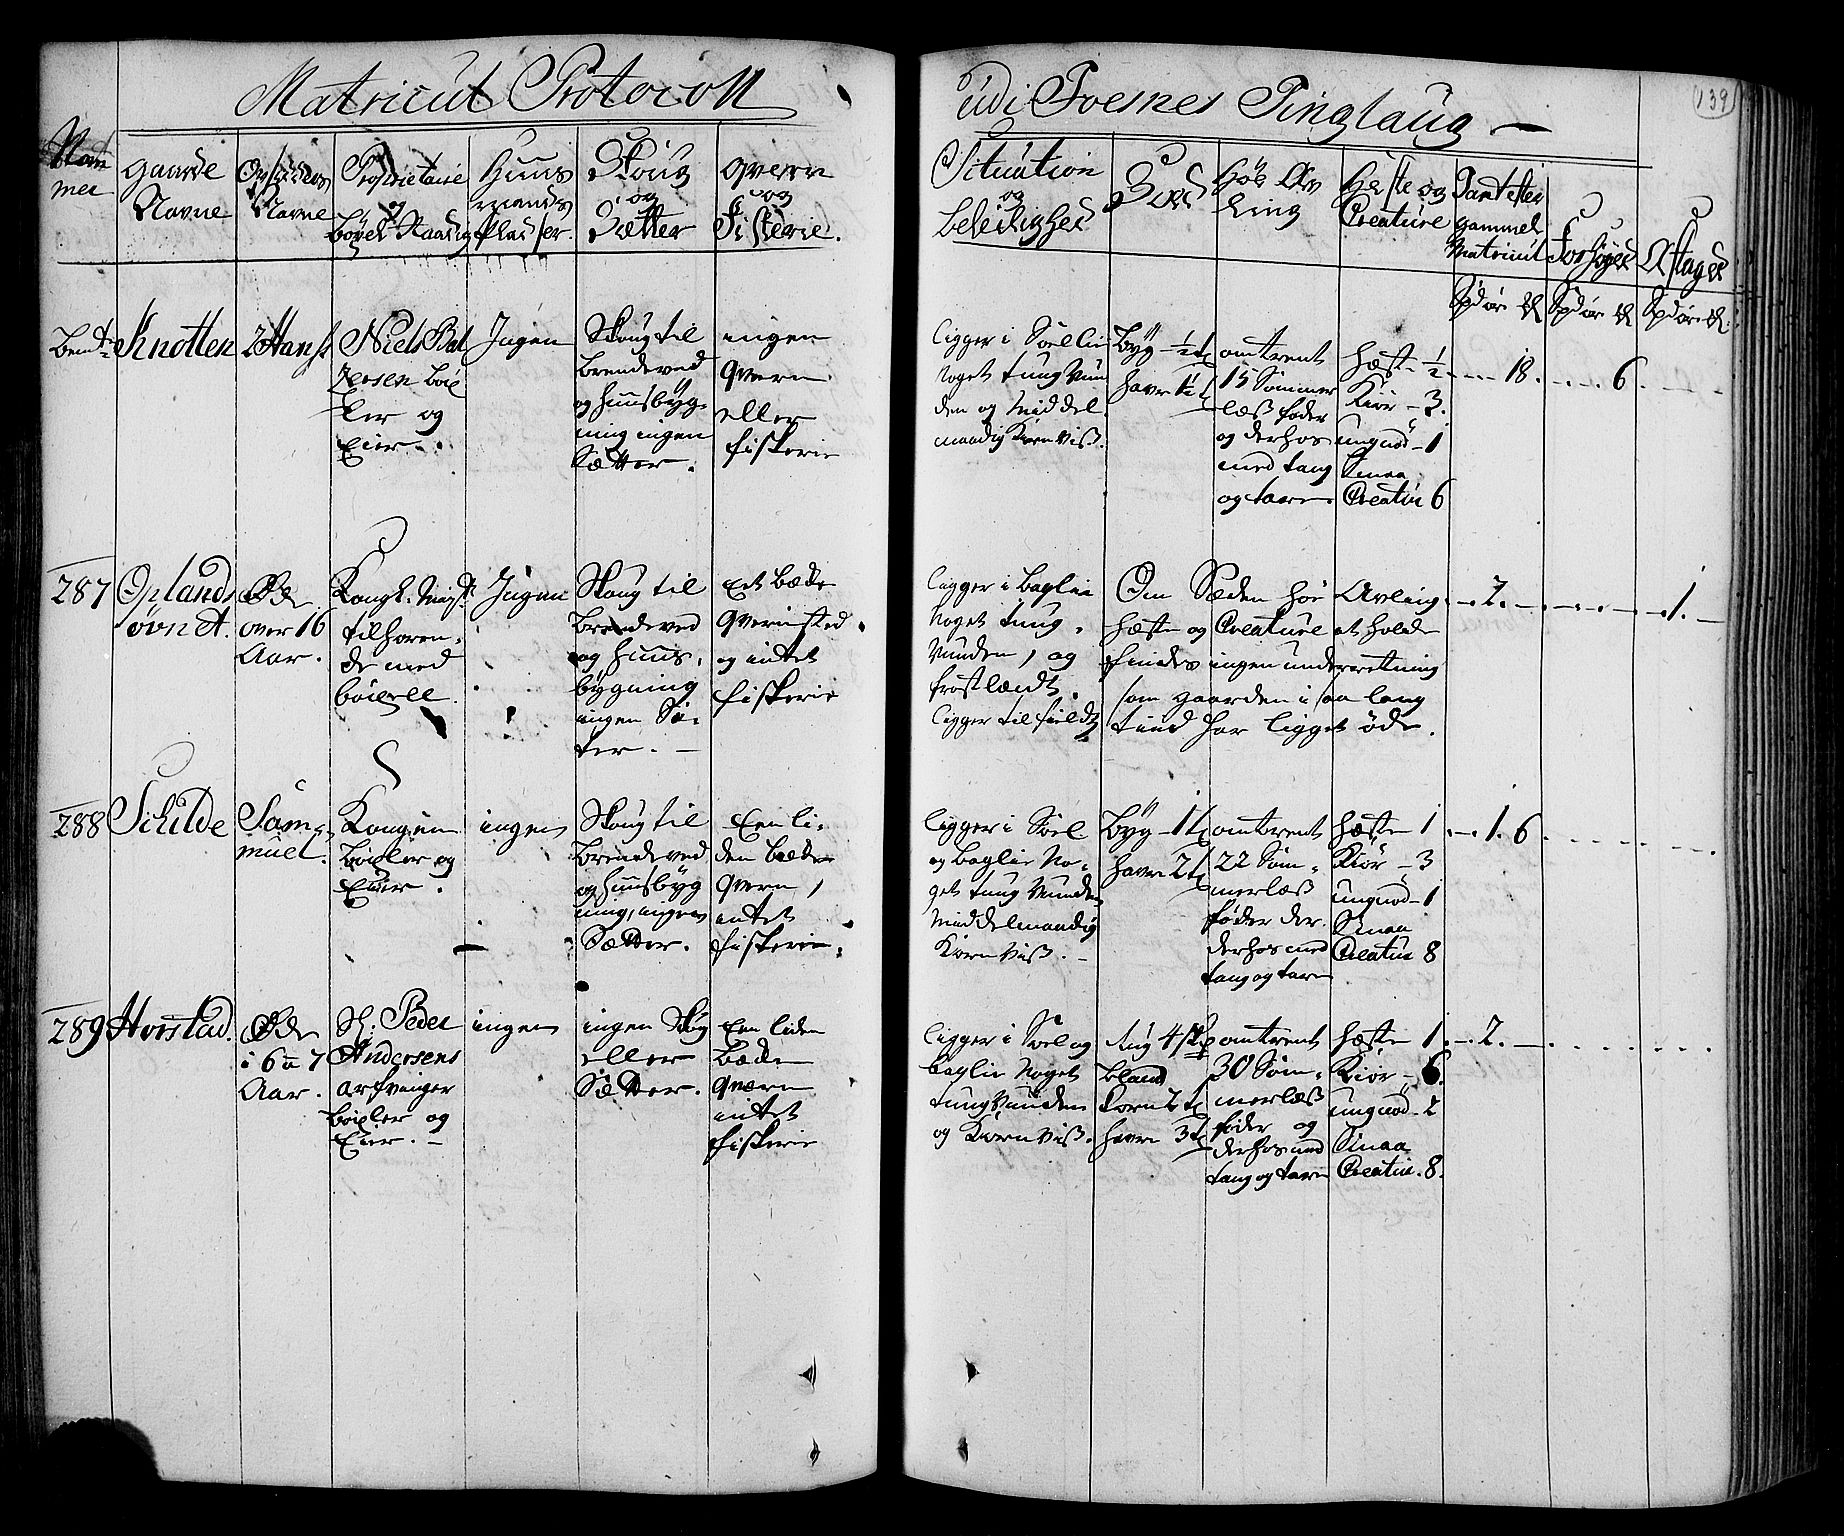 Matricul Protocoll
udi Foesnes Tinglaug
139
Num
mer
gaarde
Navne
Opsidders
Navne
Proprietairie
og
böxel Raadig
Huus
mands
pladser.
Skoug
og
Sætter
qvern
og
Fiskerie.
Situation
og
beleilighed
Sæd
Höe Av
ling
Heste og
Creature
Taxt efter
gammel
Matricul
Forhöyed
Aftaget
Spd ör
Spd ör
Spd ör
Knotten
2 Hans
Niels Bal
zersen böxl
ler og
Eier.
Ingen
Skoug til
brendeved
og huusbyg-
ning ingen
Sætter.
ingen
qvern
eller
fiskerie
ligger i Soel lie
noget tung vun
den og Middel
maadig Korn viß.
Byg - ½ t
havre 1½ t
omtrent
15 Sommer
læß foder
og derhos
med tang
og tare
Hæste - ½
Kiör - 3.
ungnöd - 1
Smaa
Creatur 6
18.
6
287
Oplands
øvnet.
Øde
over 16
Aar.
Kongl. Mayt
tilhøren-
de med
böxell
Ingen
Skoug til
brendeved
og huus-
bygning
ingen Sæ-
ter.
Et bæke
qvernsted
og intet
fiskerie
ligger i baglie
noget tung-
vunden, og
frostlændt.
ligger til fieldt
Om Sæden höe Avling
hæste og Creature at holde
findes ingen underretning
som gaarden i saa lang
tiid har ligget øde.
2.
1.
288
Schilde
Sam-
muel.
Kongen
böxler og
Eier.
ingen
Skoug til
brendeved
og huusbyg
ning, ingen
Sætter.
Een li-
den bæke
qvern,
intet
fiskerie.
ligger i Soel
og baglie no-
get tung vunden
Middelmaadig
Korn viß.
Byg - 1 t
havre 2 t
omtrent
22 Som-
merlæß
foder der-
derhos med
tang og tare
hæste 1
Kiör - 3
ungnöd - 1
Smaa
Creatur 8
1. 6
289
Horstad.
Øde
i 6 a 7
Aar.
Sl. Peder
Andersens
arfvinger
böxler og
Eier.
ingen
ingen Skoug
eller
Sætter.
Een liden
bæke
qværn
intet
fiskerie
ligger i Soel og
baglie noget
tungvunden
og Korn viß.
Rug 4 skp
bland
korn 2 t
havre 3 t
omtrent
30 Som-
merlæß
foder og
derhos med
tang og tare
hæste 1
Kiör - 6.
ungnöd - 2
Smaa
Creatur. 8.
2.